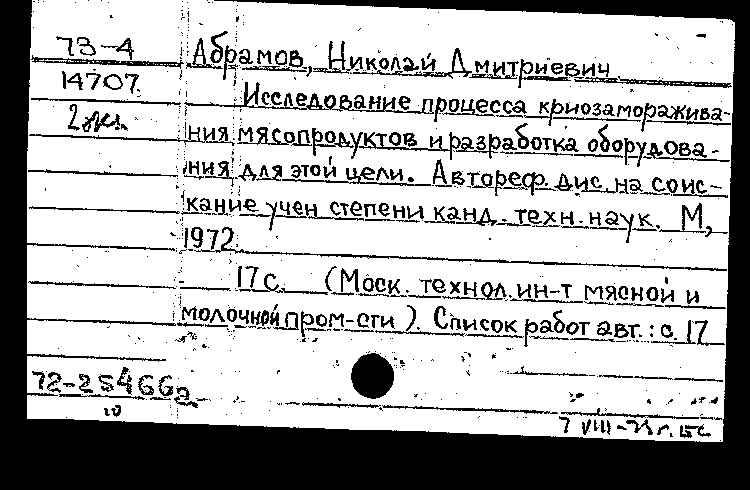 73-4
14707
2 экз.
Абрамов, Николай Дмитриевич
Исследование процесса криозаморажива-
ния мясопродуктов и разработка оборудова-
ния для этой цели. Автореф. дис. на соис-
кание учен степени канд. техн. наук. М,
1972.
17 с. (Моск. технол. ин-т мясной и
молочной пром-сти). Список работ авт.: с. 17
72-25466а
10
7 VIII-73 г.